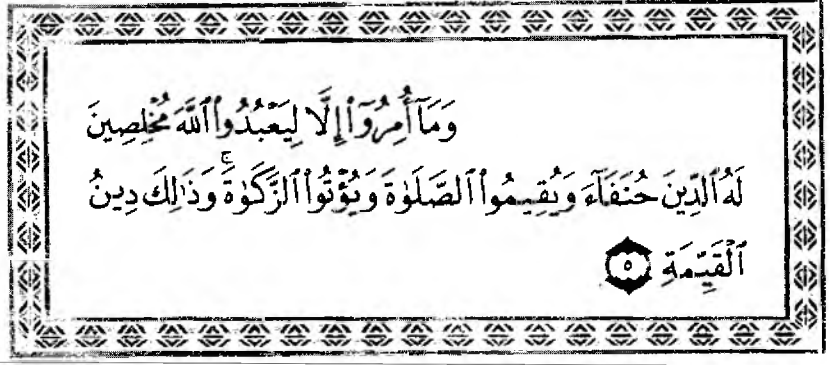 وَمَآ أُمِرُوٓا۟ إِلَّا لِيَعْبُدُوا۟ ٱللَّهَ مُخْلِصِينَ
لَهُ ٱلدِّينَ حُنَفَآءَ وَيُقِيمُوا۟ ٱلصَّلَوٰةَ وَيُؤْتُوا۟ ٱلزَّكَوٰةَ ۚ وَذَٰلِكَ دِينُ
ٱلْقَيِّمَةِ ٥